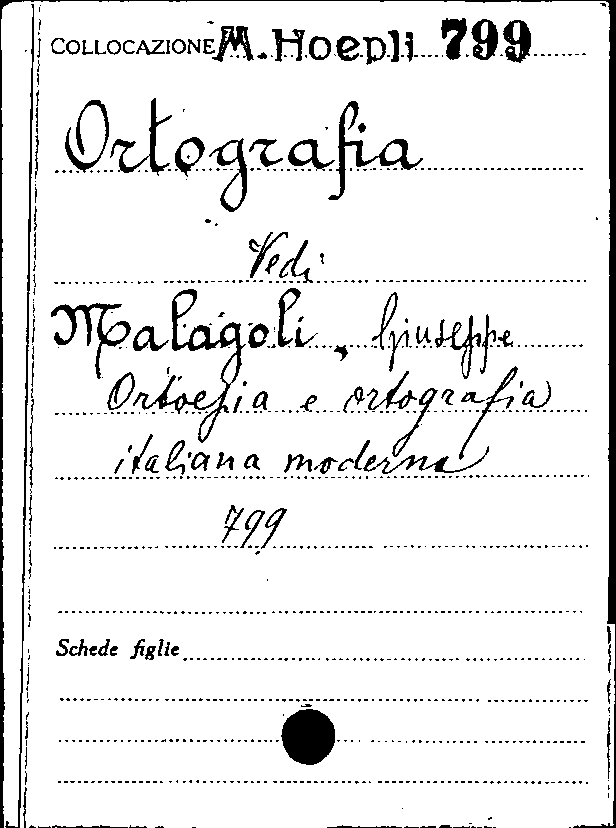 COLLOCAZIONE M. Hoepli 799
Ortografia
Vedi
Malagoli, Giuseppe
Ortoepia e ortografia
italiana moderna
799
Schede figlie